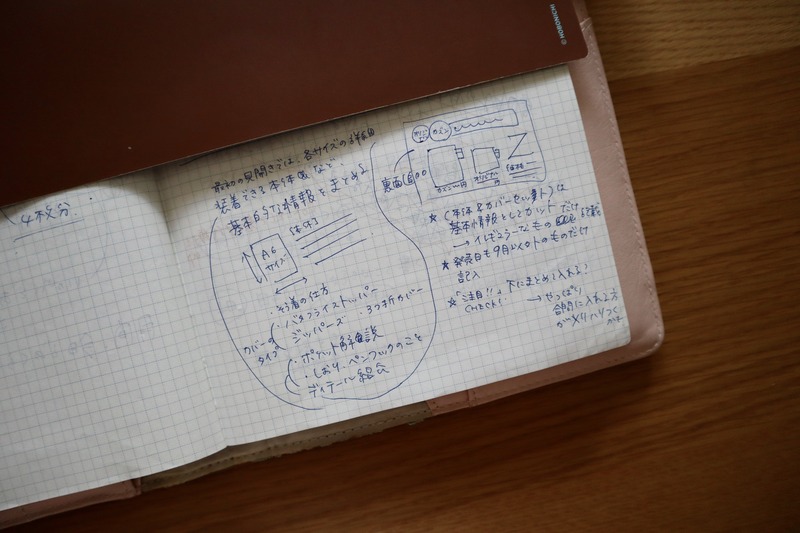 © HOBONICHI
4枚分.
最初の見開きでは、各サイズの詳細
装着できる本体 など、
基本的な情報をまとめる
A6
サイズ
〈本体〉
・そう着の仕方
カバーの
タイプ
・バタフライストッパー
・ジッパーズ ・3つ折カバー
・ポケット解説
・しおり、ペンフックのこと
ディテール紹介
裏面
★ 〈本体&カバーセットは
基本情報としてカット だけ
→イレギュラーなもの 記載
★ 発売日も9月以外のものだけ
記入
★「注目!!」下にまとめて入れる?
CHECK!
→ やっぱり
合間に入れる方
がメリハリつく